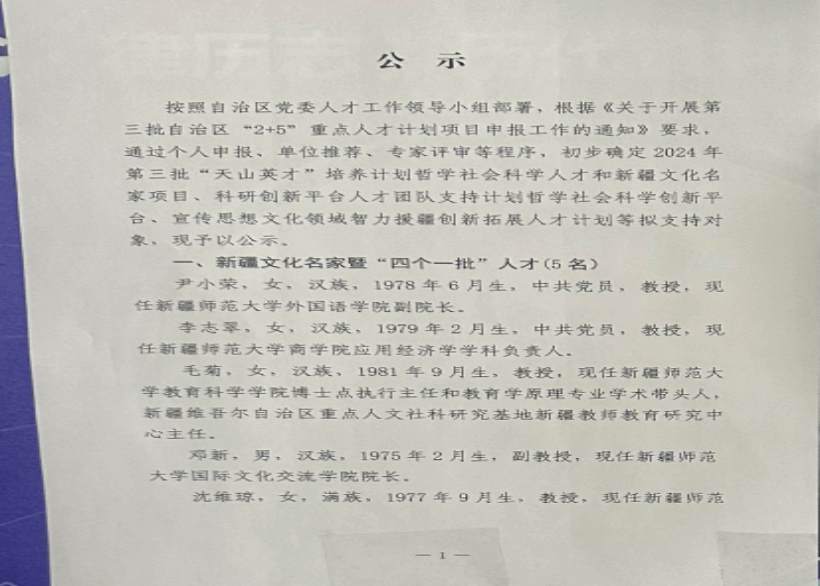 公 示
按照自治区党委人才工作领导小组部署，根据《关于开展第
三批自治区“2+5”重点人才计划项目申报工作的通知》要求，
通过个人申报、单位推荐、专家评审等程序，初步确定 2024 年
第三批“天山英才”培养计划哲学社会科学人才和新疆文化名
家项目、科研创新平台人才团队支持计划哲学社会科学创新平
台、宣传思想文化领域智力援疆创新拓展人才计划等拟支持对
象，现予以公示。
一、新疆文化名家暨“四个一批”人才(5 名)
尹小荣，女，汉族，1978 年 6 月生，中共党员，教授，现
任新疆师范大学外国语学院副院长。
李志翠，女，汉族，1979 年 2 月生，中共党员，教授，现
任新疆师范大学商学院应用经济学学科负责人。
毛菊，女，汉族，1981 年 9 月生，教授，现任新疆师范大
学教育科学学院博士点执行主任和教育学原理专业学术带头人，
新疆维吾尔自治区重点人文社科研究基地新疆教师教育研究中
心主任。
邓新，男，汉族，1975 年 2 月生，副教授，现任新疆师范
大学国际文化交流学院院长。
沈维琼，女，满族，1977 年 9 月生，教授，现任新疆师范
— 1 —